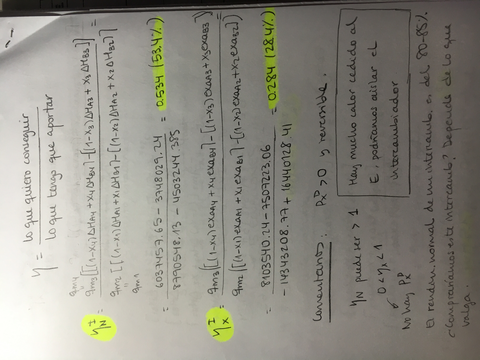 η = lo que quiero conseguir / lo que tengo que aportar
η_N^I = q_m3 [[(1-x4)ΔH_A4 + x4ΔH_B4] - [(1-x3)ΔH_A3 + x3ΔH_B3]] / q_m2 [[(1-x1)ΔH_A1 + x1ΔH_B1] - [(1-x2)ΔH_A2 + x2ΔH_B2]]
= 6037457.65 - 3748029.24 / 8790548.13 - 4503244.385 = 0.534 (53.4%)
η_x^I = q_m3 [[(1-x4)exa_A4 + x4 exa_B4] - [(1-x3)exa_A3 + x3 exa_B3]] / q_m2 [[(1-x1)exa_A1 + x1 exa_B1] - [(1-x2)exa_A2 + x2 exa_B2]]
= 8103540.24 - 7507223.06 / -14343208.77 + 16440128.41 = 0.284 (28.4%)
Comentarios: Px > 0 y reversible.
η_N puede ser > 1
0 < η_x < 1
No hay Px^P
Hay mucho calor cedido al
E, podríamos aislar el
intercambiador
El rendim. normal de un intercamb. es del 80-85%.
¿Compraríamos este intercamb? Depende de lo que
valga.